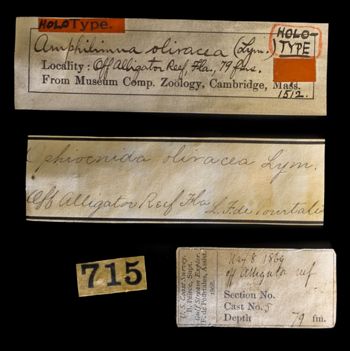 HOLOType.
HOLO-
TYPE
Amphilimna olivacea (Lym.)
Locality: Off Alligator Reef, Fla., 79 fms.
From Museum Comp. Zoology, Cambridge, Mass.
1512.
Ophiocnida olivacea Lym.
Off Alligator Reef Fla
L. F. de Pourtales
715
U. S. Coast Survey,
B. Peirce, Supt.
Gulf Stream Explor.
F. de Pourtales, Assist.
May 8 1869
off Alligator reef
Section No.
Cast No. 5
Depth 79 fm.